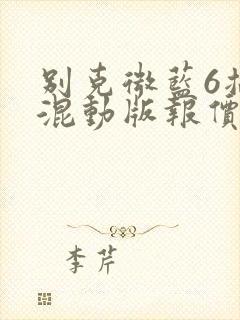 別克微藍6插
混動版報價
李芹